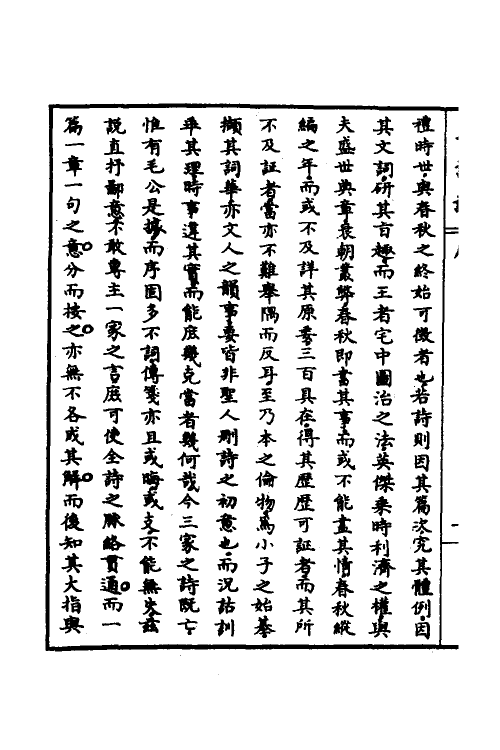 禮時世與春秋之終始可徵者也若詩則因其篇次究其體例因
其文詞研其旨趣而王者宅中圖治之法英傑乘時利濟之權與
夫盛世典章衰朝叢弊春秋即書其事而或不能盡其情春秋縱
編之年而或不及詳其原委三百具在得其歷歷可証者而其所
不及証者當亦不難舉隅而反耳至乃本之倫物為小子之始基
擷其詞華亦文人之韻事要皆非聖人刪詩之初意也而況詁訓
乖其理時事違其實而能庶幾克當者幾何哉今三家之詩既亡
惟有毛公是據而序固多不詞傳箋亦且或晦或支不能無失茲
說直抒鄙意不敢專主一家之言庶可使全詩之脈絡貫通而一
篇一章一句之意分而按之亦無不各成其解而後知其大指與